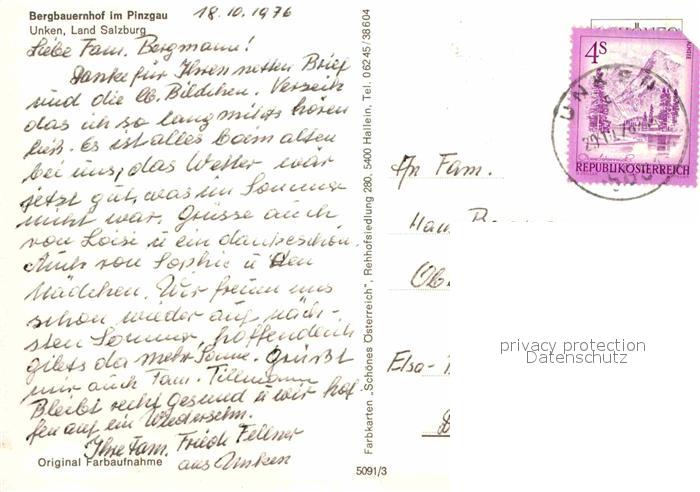 Bergbauernhof im Pinzgau
Unken, Land Salzburg
18.10.1976
Liebe Fam. Bergmann!
Danke für Ihren netten Brief
und die lb. Bildchen. Verzeih
das ich so lang nichts hören
ließ. Es ist alles beim alten
bei uns, das Wetter wär
jetzt gut, was im Sommer
nicht war. Grüsse auch
von Loisi u ein dankeschön.
Auch von Sophie u den
Mädchen. Wir freuen uns
schon wieder auf näch-
sten Sommer, hoffendlich
gibts da mehr Sonne. Grüßt
mir auch Fam. Tillmann
Bleibt recht gesund u wir hof-
fen auf ein Wiedersehn.
Ihre Fam. Friedl Fellner
aus Unken
Original Farbaufnahme
Farbkarten „Schönes Österreich", Rehhofsiedlung 280, 5400 Hallein, Tel. 06245/38604
5091/3
4S
REPUBLIK ÖSTERREICH
UNKEN
An Fam.
Elsa-
privacy protection
Datenschutz